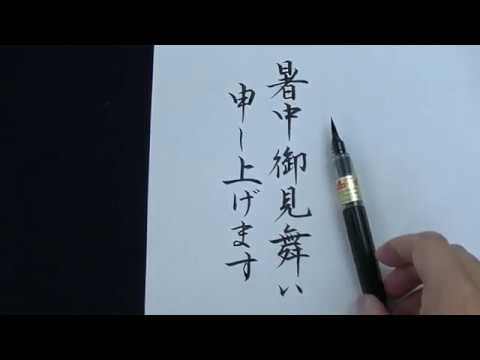 暑中御見舞い
申し上げます